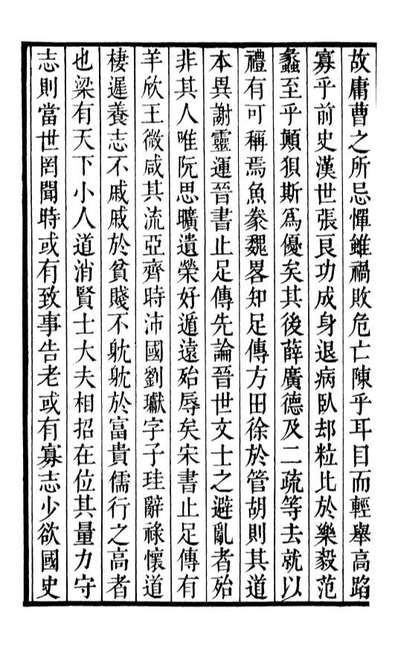 故庸曹之所忌憚雖禍敗危亡陳乎耳目而輕舉高蹈
寡乎前史漢世張良功成身退病臥却粒比於樂毅范
蠡至乎顛狽斯爲優矣其後薛廣德及二疏等去就以
禮有可稱焉魚豢魏畧知足傳方田徐於管胡則其道
本異謝靈運晉書止足傳先論晉世文士之避亂者殆
非其人唯阮思曠遺榮好遁遠殆辱矣宋書止足傳有
羊欣王微咸其流亞齊時沛國劉瓛字子珪辭祿懷道
棲遲養志不戚戚於貧賤不躭躭於富貴儒行之高者
也梁有天下小人道消賢士大夫相招在位其量力守
志則當世罔聞時或有致事告老或有寡志少欲國史